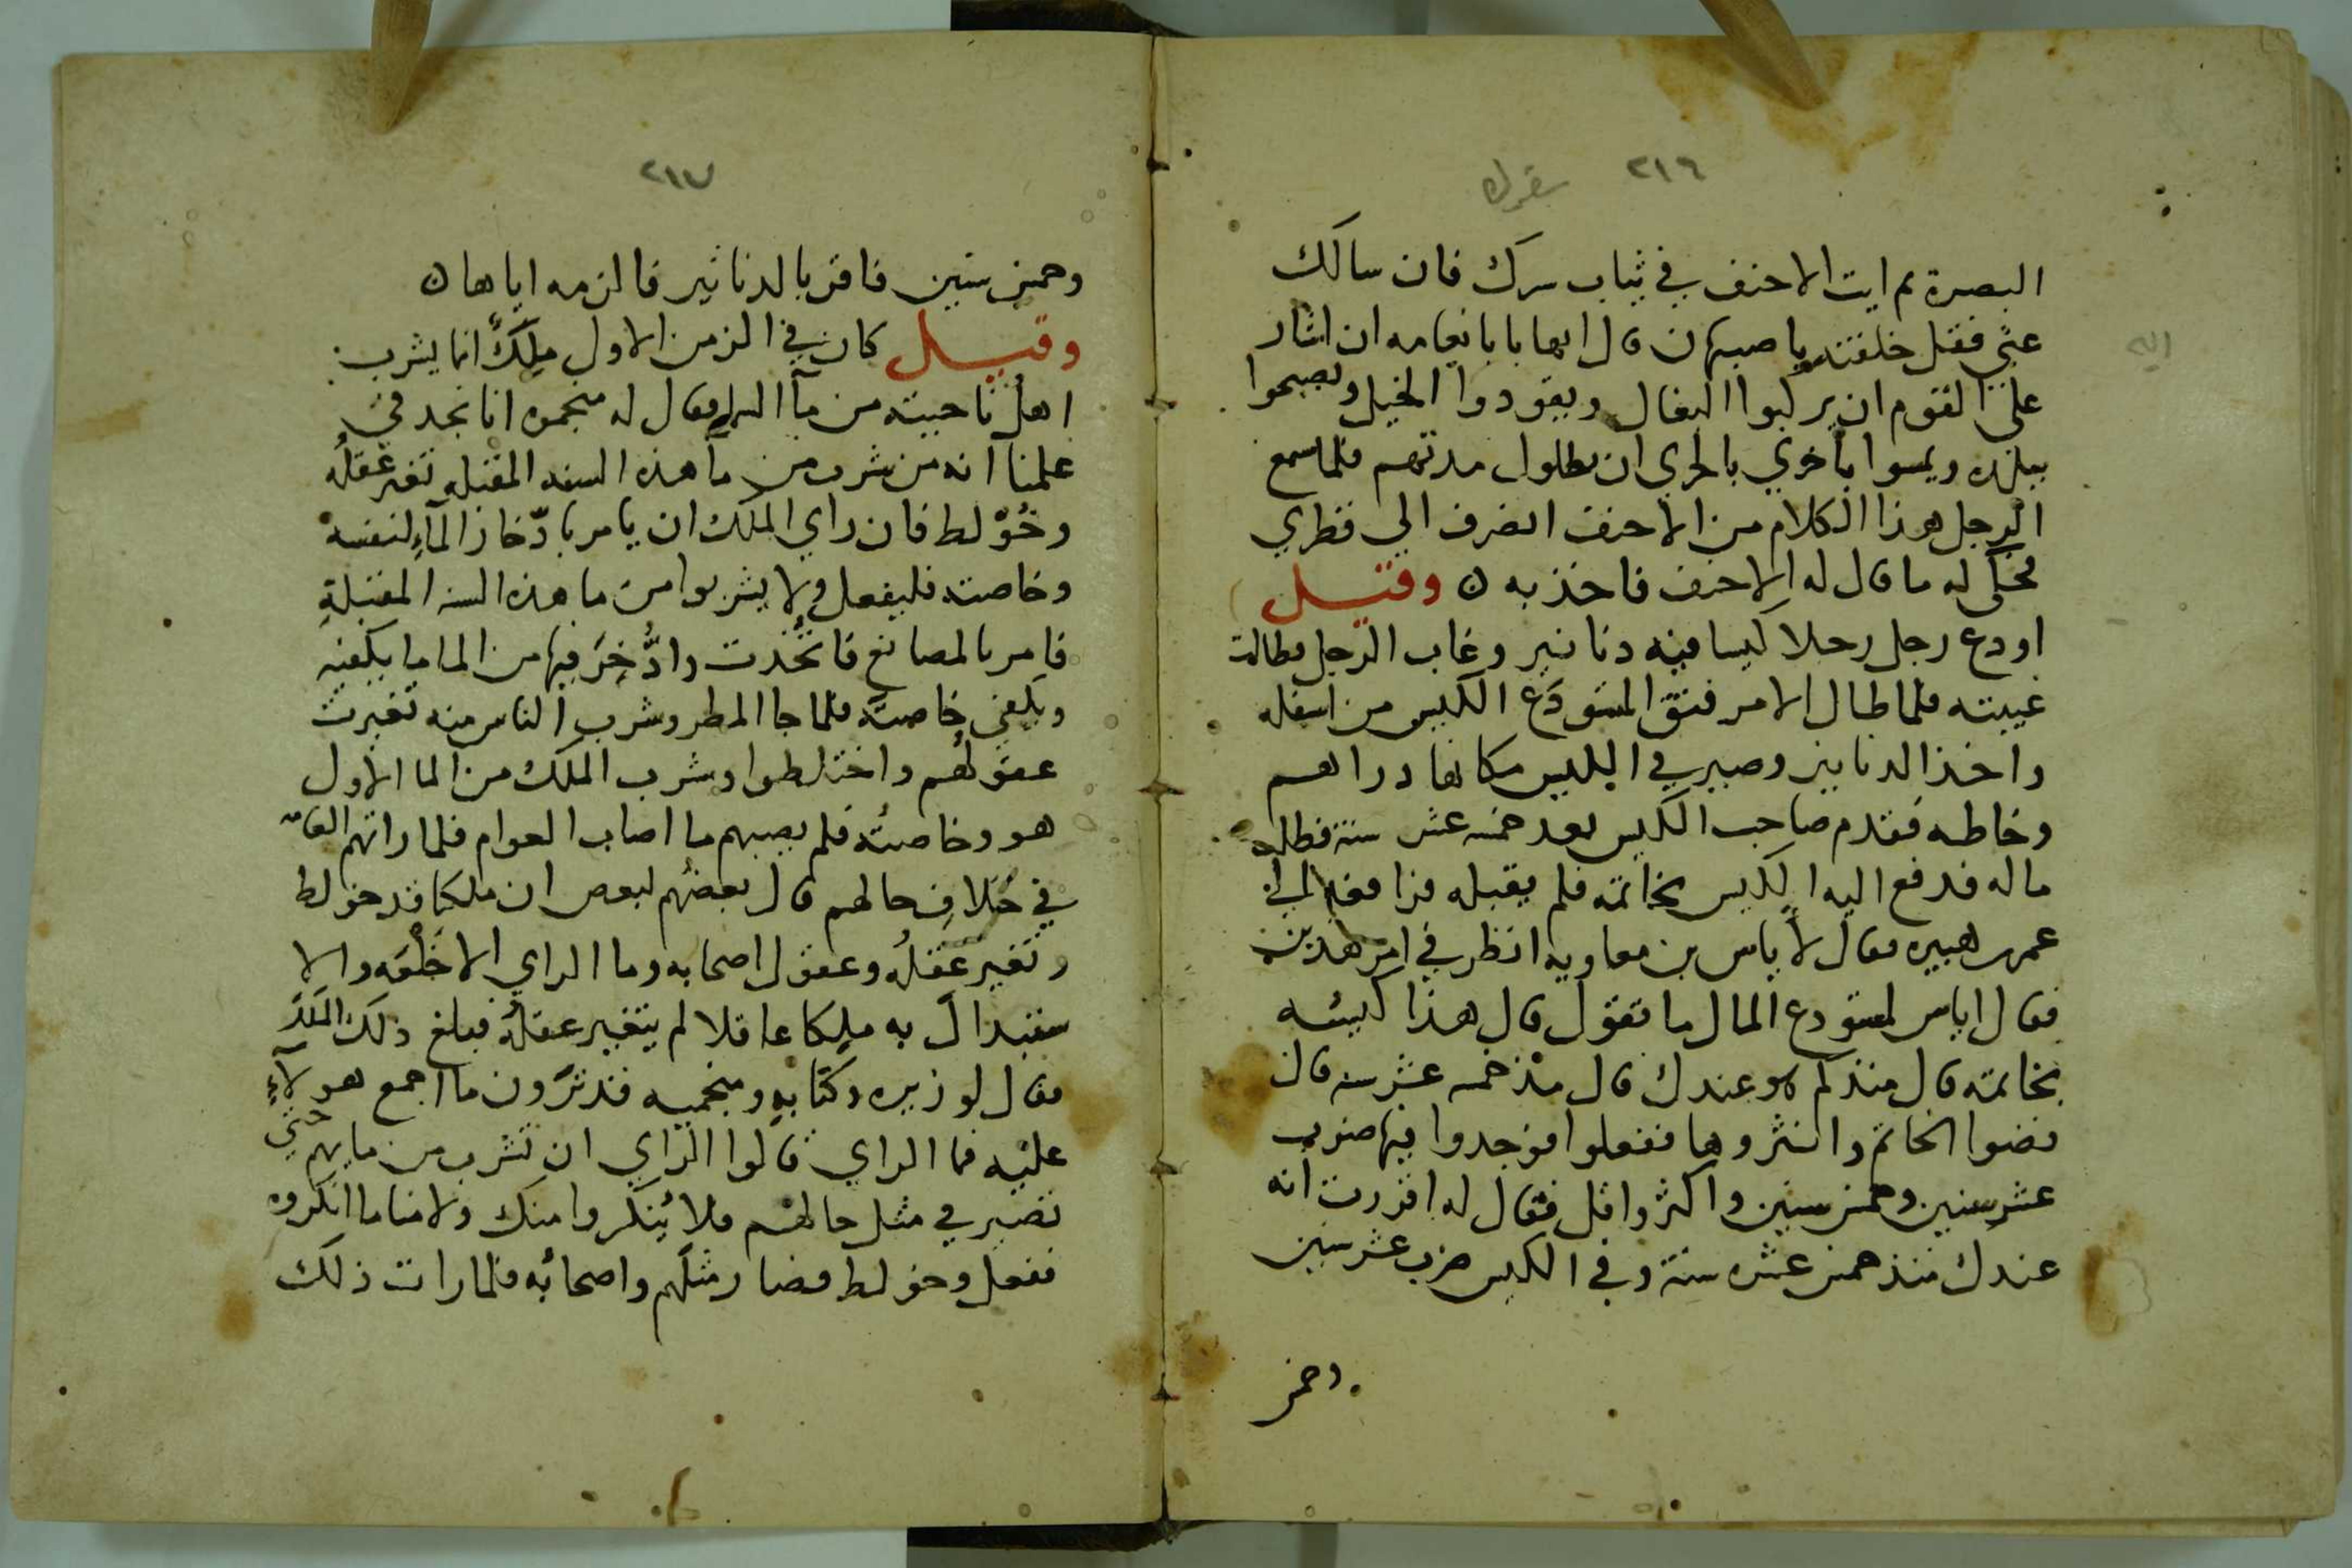 ٢١٦
البصرة ثم ايت الاحنف في ثياب سرك فان سالك
عني فقل خلفته باصبهان قال ايها بابا نعامه ان اشار
على القوم ان يركبوا البغال ويقودوا الخيل ويصبحوا
ببلده ويمسوا باخري بالحري ان تطول مدتهم فلما سمع
الرجل هذا الكلام من الاحنف انصرف الي قطري
فحكي له ما قال له الاحنف فاخذ به ن وقيل
اودع رجل رجلا كيسا فيه دنانير وغاب الرجل فطالت
غيبته فلما طال الامر فتق المستودع الكيس من اسفله
واخذ الدنانير وصير في الكيس مكانها دراهم
وخاطه فقدم صاحب الكيس بعد خمسه عشر سنة فطلب
ماله فدفع اليه الكيس بخاتمه فلم يقبله فرافعه الي
عمر بن هبيره فقال لأياس بن معاويه انظر في امر هذين
فقال اياس لمستودع المال ما تقول قال هذا كيسه
بخاتمه قال منذ كم هو عندك قال منذ خمسه عشر سنه قال
فضوا الخاتم وانثروها ففعلوا فوجدوا فيها ضرب
عشر سنين وخمس سنين واكثر واقل فقال له اقررت انه
عندك منذ خمس عشره سنة وفي الكيس ضرب عشر سنين
وخمس
٢١٧
وخمس سنين فاقر بالدنانير فالزمه اياها ن
وقيل كان في الزمن الاول ملكٌ انما يشرب
اهل ناحيته من مآ المطر فقال له منجموه انا نجد في
علمنا انه من شرب من مآ هذه السنه المقبله تغير عقلُه
وخُوّلط فان راي الملك ان يامر بادّخار المآءِ لنفسه
وخاصته فليفعل ولا يشربوا من ما هذه السنه المقبلةِ
فامر بالمصانع فاتّخُذت وادُّخِرَ فيها من الما ما يكفيه
ويكفي خاصته فلما جا المطر وشرب الناس منه تغيرت
عقولُهُم واختلطوا وشرب الملك من الما الاول
هو وخاصتُه فلم يصبهم ما اصاب العوام فلما راتهم العامه
في خلافِ حالهم قال بعضُهم لبعض ان ملكنا قد خولط
وتغير عقلُه وعقول اصحابه وما الراي الا خَلْعَه والا
ستبدالَ به ملكا عاقلا لم يتغير عقلُهُ فبلغ ذلك الملكَ
فقال لوزيره وكتابهِ ومنجميه قد تَرَون ما اجمع هولآءِ
عليه فما الراي قالوا الراي ان تشرب من مايهم حتي
تصير في مثل حالهم فلا يُنكروا منك ولا منا ما انكروه
ففعل وخولط فصار مثلَهم واصحابُه فلما رات ذلك